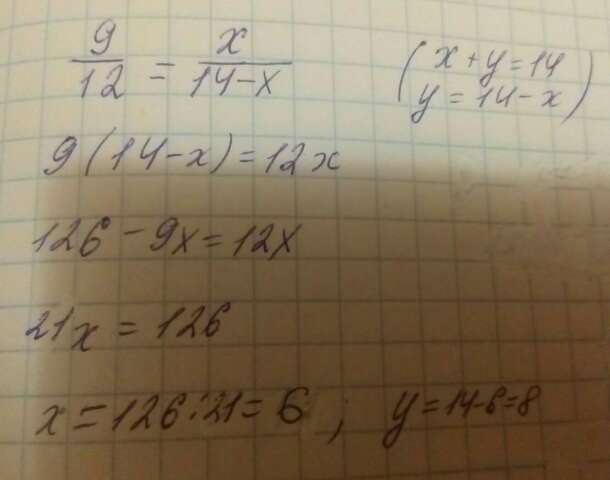 9/12 = x/(14-x) (x+y=14
y=14-x)
9(14-x)=12x
126-9x=12x
21x=126
x=126:21=6; y=14-6=8